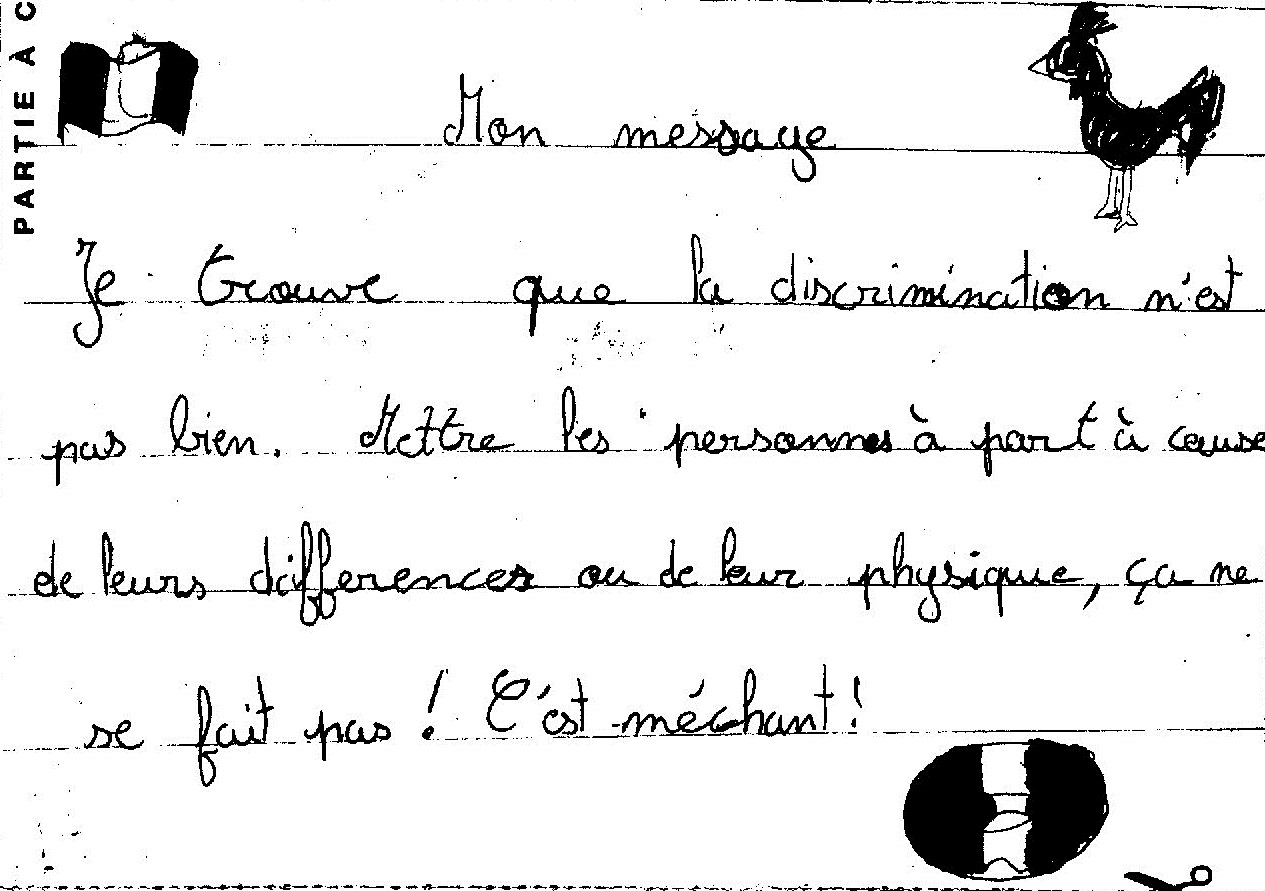 PARTIE À C
Mon message
Je trouve que la discrimination n'est
pas bien. Mettre les personnes à part à cause
de leurs differences ou de leur physique, ça ne
se fait pas ! C'est méchant !